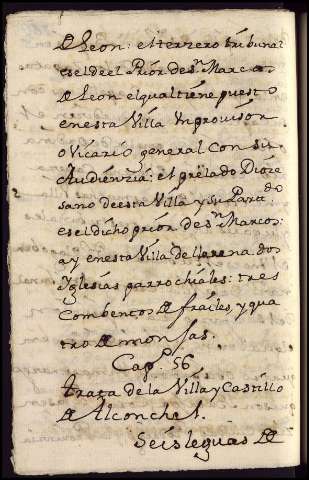 de Leon: el terzero tribunal
es el de el Prior de sn Marcos
de Leon el qual tiene puesto
en esta Villa Un provisor
o Vicario general con su
Audienzia: el prelado Dioze
sano de esta Villa y su Partido
es el dicho prior de sn Marcos:
ay en esta Villa de llerena dos
Yglesias parrochiales: tres
Combentos de frailes, y qua
tro de monjas.
Capo 56
trata de la Villa y Castillo
de Alconchel.
Seis leguas de